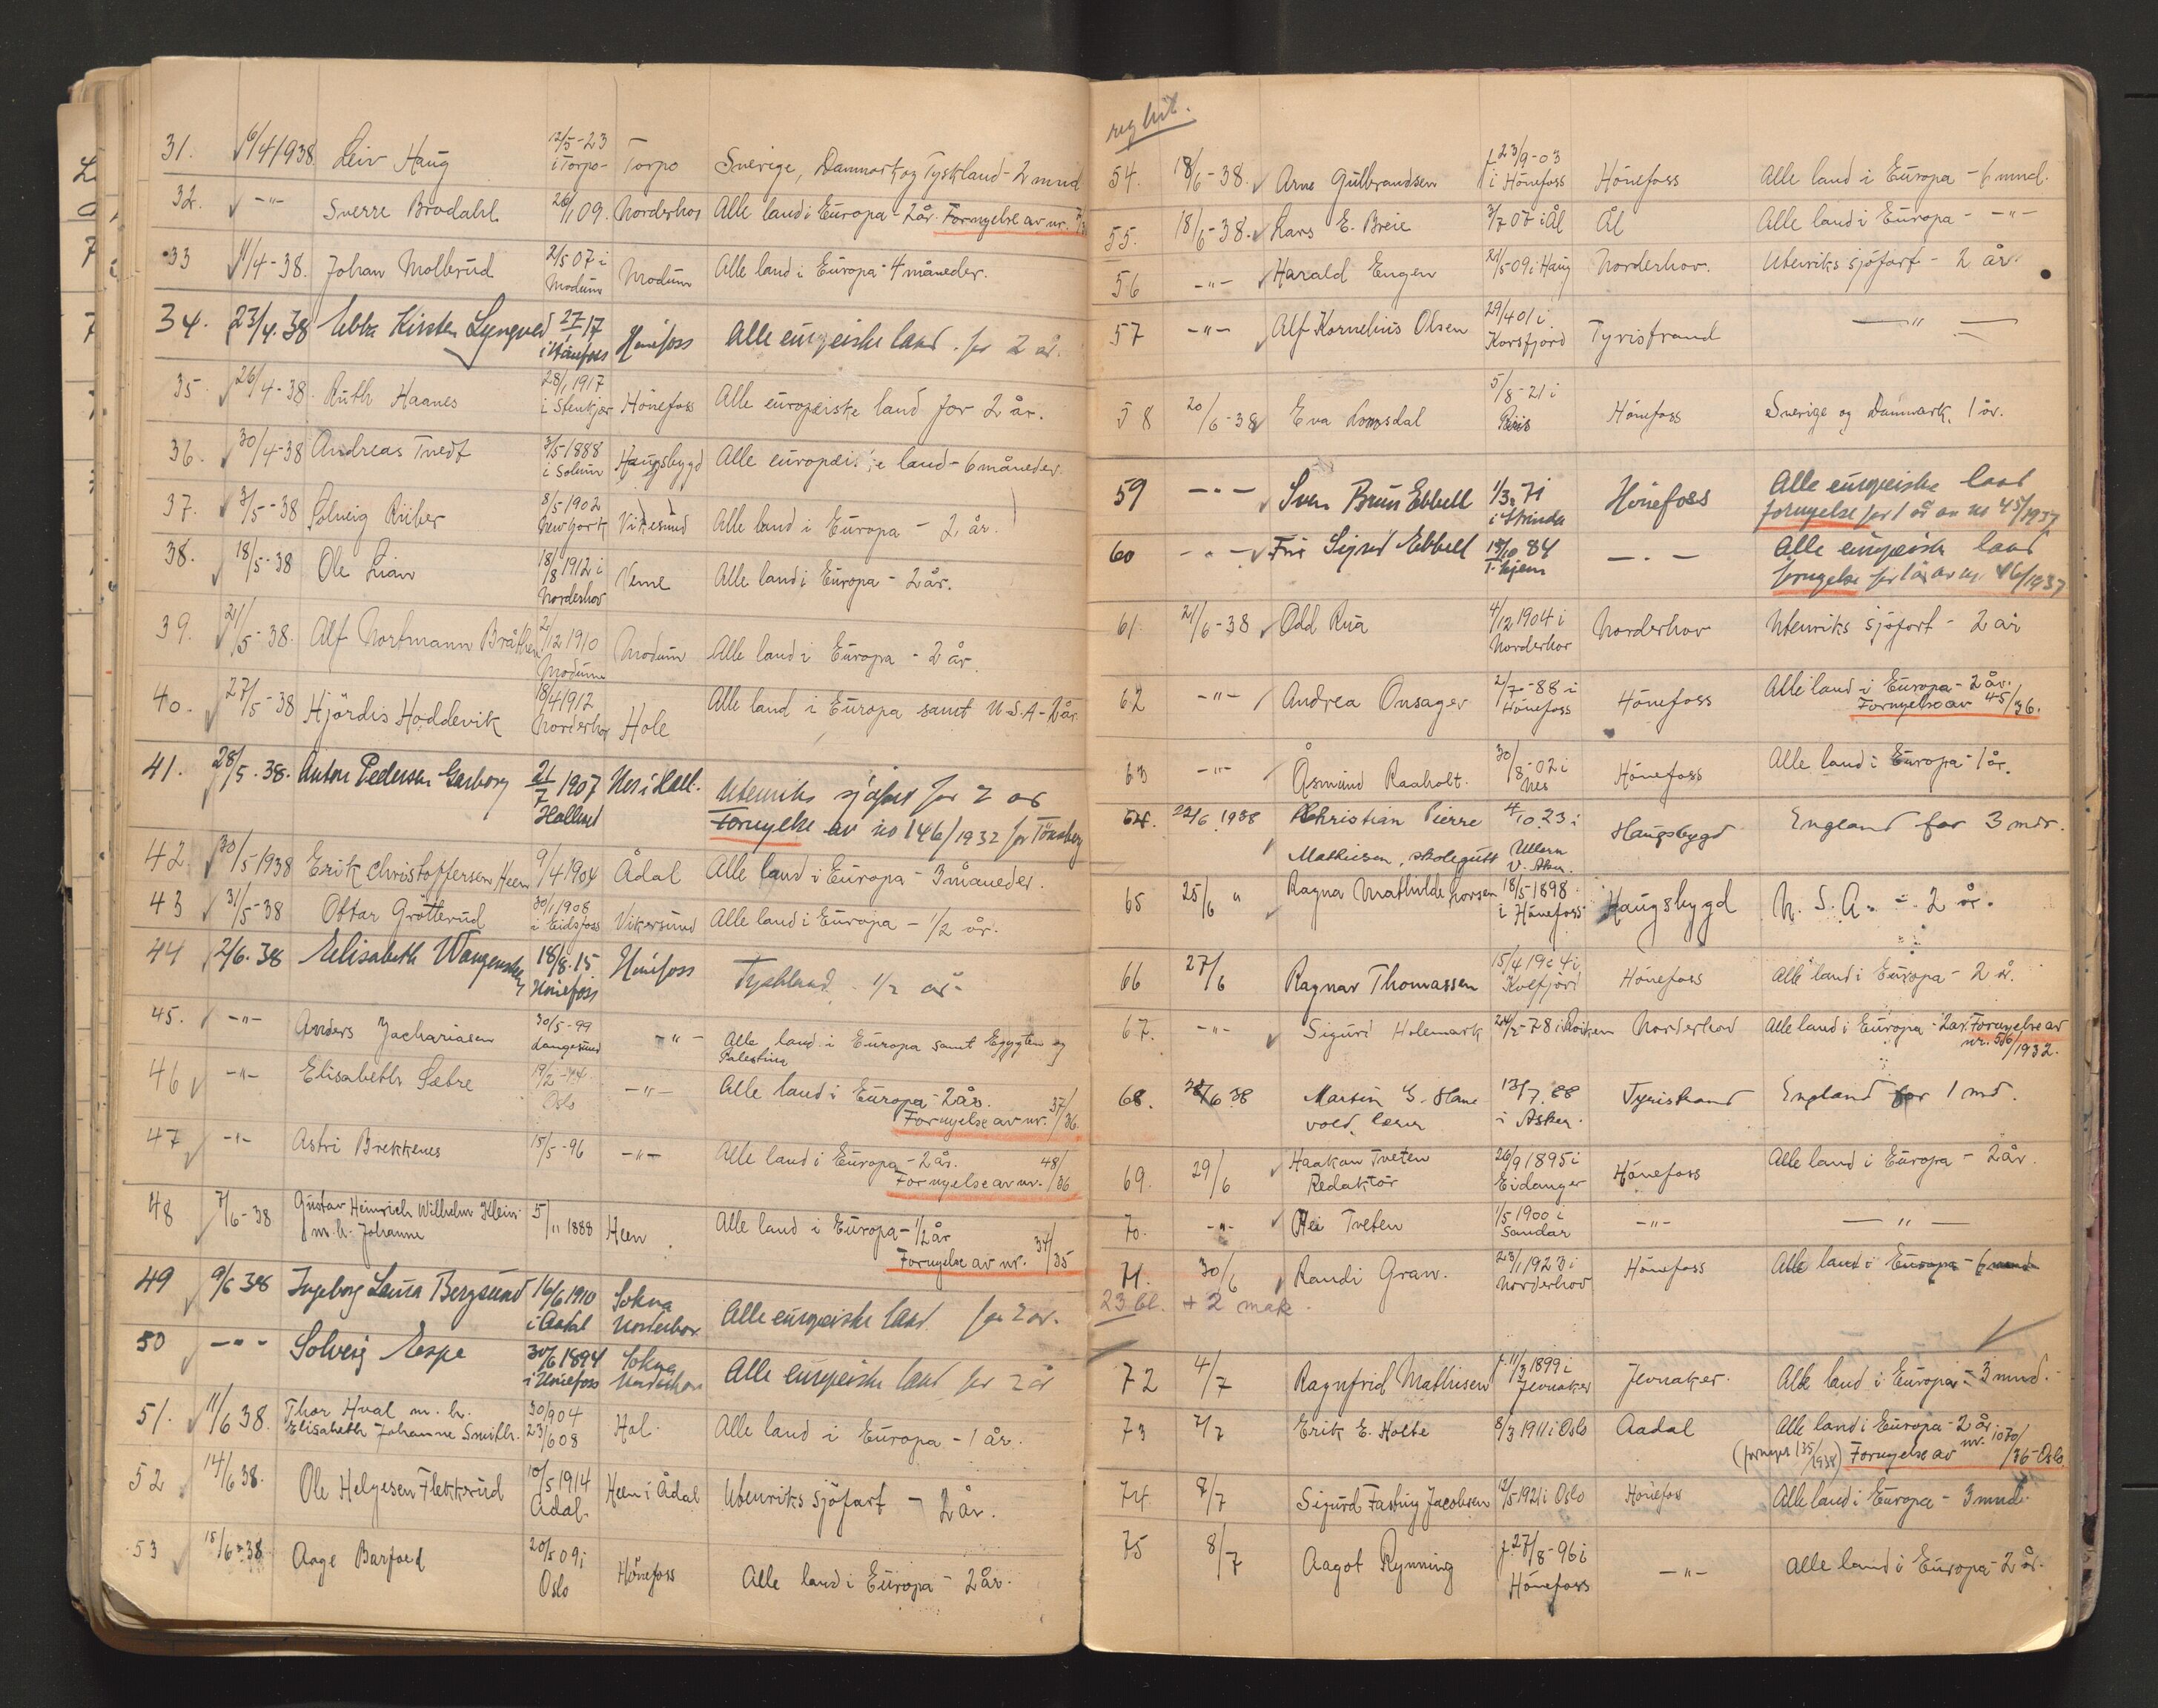 31. 6/4 1938 Leiv Haug 12/5-23 i Torpo- Torpo Sverige, Danmark og Tyskland - 2 mnd
32. -"- Sverre Brodahl 26/1 09. Norderhov Alle land i Europa - 2 år. Fornyelse av nr.
33 11/4-38. Johan Molberud 2/5 07 i Modum Modum Alle land i Europa - 4 måneder.
34. 23/4.38 Ebba Kirsten 27/1 17 i Hönefoss Hönefoss Alle europeiske land for 2 år.
35. 26/4-38. Ruth Haanes 28/1 1917 i Stenkjær Hönefoss Alle europeiske land for 2 år.
36. 30/4-38 Andreas Tvedt 3/5-1888 i Solum Haugsbygd Alle europeiske land - 6 måneder.
37. 3/5-38 Solveig Riiber 8/5-1902 New York Vikesund Alle land i Europa - 2 år.
38. 18/5-38 Ole Lian 18/8 1912 i Norderhov Veme Alle land i Europa - 2 år.
39. 21/5-38. Alf Nortmann Bråthen 2/12 1910 Modum Modum Alle land i Europa - 2 år.
40. 27/5-38 Hjördis Hoddevik 18/4 1912 Norderhov Hole Alle land i Europa samt U-S-A - 2 år.
41. 28/5.38. Anton Pedersen Garborg 21/7 1907 Nes i Hall. Utenriks sjöfart for 2 år
Fornyelse av no 146/1932 for Tönsberg
42. 30/5 1938 Erik Christoffersen Heen 9/4 1904 Ådal Alle land i Europa - 3 måneder.
43 31/5-38 Ottar Grötterud 30/1 1908 i Eidsfoss Vikersund Alle land i Europa - 1/2 år.
44 2/6.38 Elisabeth 18/8.15. Hönefoss Hönefoss Tyskland. 1/2 år-
45. -"- Anders Zachariasen 30/5-99 Langesund -"- Alle land i Europa samt Egypten og
Palestina
46 -"- Elisabeth Sætre 19/2-14 Oslo -"- Alle land i Europa - 2 år.
Fornyelse av nr. 37/36.
47 -"- Astri Brekkenes 15/5-96 -"- Alle land i Europa - 2 år.
Fornyelse av nr. 48/36
48 7/6-38 Gustav Heinrich Wilhelm Klein 5/11 1888 Heen Alle land i Europa - 1/2 år
m.h. Johanne Fornyelse av nr. 34/35
49 9/6 38 Ingeborg Laura Bergsund 16/6 1910 i Aadal Sokna Norderhov. Alle europeiske land for 2 år.
50 -"- Solveig Espe 30/6 1894 i Hönefoss Sokna Norderhov Alle europeiske land for 2 år
51. 11/6 38. Thor Hval m.h. 30/9 04 Hol. Alle land i Europa - 1 år.
Elisabeth Johanne Smith. 23/6 08
52 14/6 38. Ole Helgesen Flekkerud 10/5 1914 Ådal. Heen i Ådal Utenriks sjöfart - 2 år.
53 15/6-38 Aage Barfoed 20/5 09 i Oslo Hönefoss Alle land i Europa - 2 år.
reg hit.
54. 18/6-38. Arne Gulbrandsen f. 23/9-03 i Hönefoss Hönefoss Alle land i Europa - 6 mnd.
55. 18/6-38. Lars E. Breie 3/7 07 i Ål Ål Alle land i Europa - -"-
56 -"- Harald Engen 21/5-09 i Haug Norderhov. Utenriks sjöfart - 2 år.
57 -"- Alf Kornelius Olsen 29/4 01 i Korsfjord Tyristrand -"-
58 20/6-38 Eva Lomsdal 5/8-21 i Hönefoss Sverige og Danmark. 1 år.
59 -"- Sven Bruun Ebbell 1/3.71 i Strinda Hönefoss Alle europeiske land
fornyelse for 1 år av no 45/1937
60 -"- Fru Sigrid Ebbell 18/10 84 T.hjem -"- Alle europeiske land
fornyelse for 1 år av no. 46/1937
61. 21/6-38 Odd Rua 4/12 1904 i Norderhov Norderhov Utenriks sjöfart - 2 år
62 -"- Andrea Onsager 2/7-88 i Hönefoss Hönefoss Alle land i Europa - 2 år.
Fornyelse av 45/36.
63 -"- Åsmund Raaholt. 30/8-02 i Nes Hönefoss Alle land i Europa - 1 år.
64. 22/6 1938 Christian Pierre 4/10.23 i Haugsbygd England for 3 mdr.
Mathiesen, skolegutt Ullern V. Aker.
65 25/6 " Ragna Mathilde Larsen 18/5-1898. i Hönefoss Haugsbygd U.S.A. - 2 år.
66 27/6 Ragnar Thomassen 15/4 1904 i Hönefoss Alle land i Europa - 2 år.
67. -"- Sigurd Holemark 24/2-78 i Röiken Norderhov Alle land i Europa - 2 år. Fornyelse av
nr. 56/1932.
68. 28/6 38 Martin G. Hane 13/7.88 Tyristrand England for 1 md.
vold, lærer i Asker.
69. 29/6 Haakon Tveten 26/9 1895 i Hönefoss Alle land i Europa - 2 år.
Redaktör Eidanger
70. -"- Tveten 1/5 1900 i Sandar -"- -"-
71. 30/6 Randi Gran. 23/1 1923 i Norderhov Hönefoss Alle land i Europa - 6 mnd
23 bl. + 2 mak.
72 4/7 Ragnfrid Mathisen f. 11/3 1899 i Jevnaker Jevnaker. Alle land i Europa - 3 mnd.
73 7/7 Erik E. Holte 8/3 1911 i Oslo Aadal Alle land i Europa - 2 år
(fornyes 135/1938) Fornyelse av nr. 1070/36-Oslo.
74. 8/7 Sigurd Fasting Jacobsen 12/5 1921 i Oslo Hönefoss Alle land i Europa - 3 mnd.
75 8/7 Aagot Rynning f. 27/8-96 i Hönefoss -"- Alle land i Europa - 2 år.